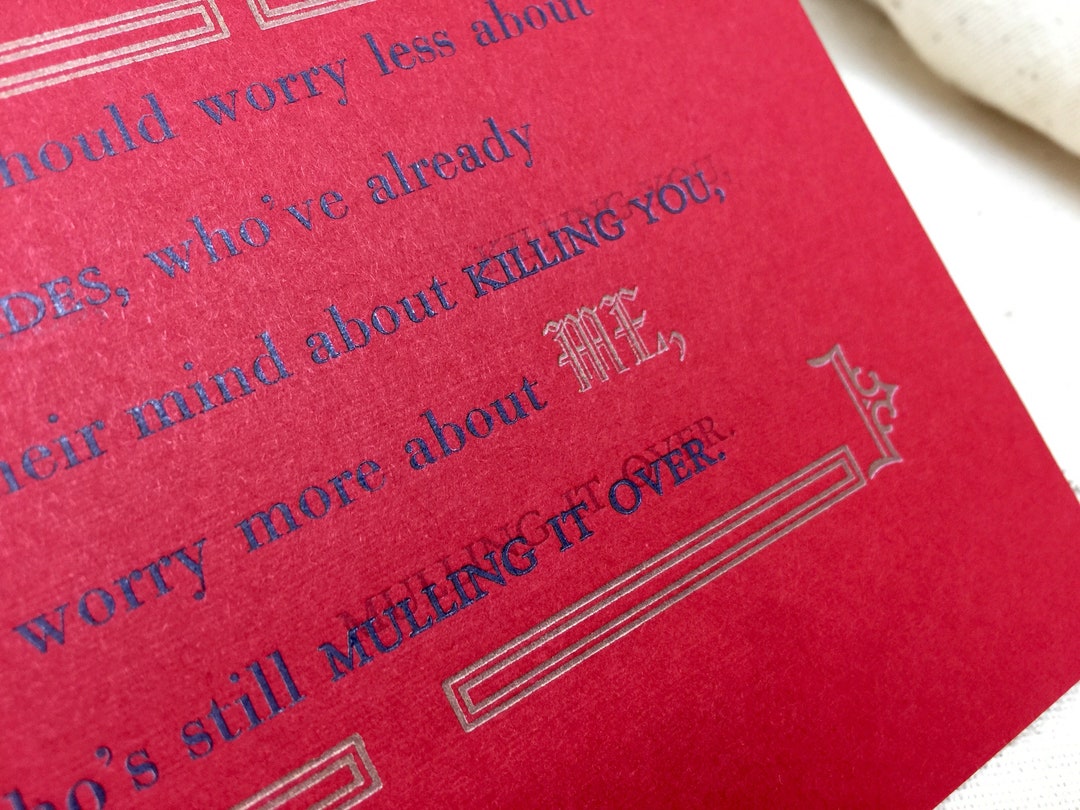 should worry less about
DES, who've already
their mind about KILLING YOU,
worry more about ME,
who's still MULLING IT OVER.